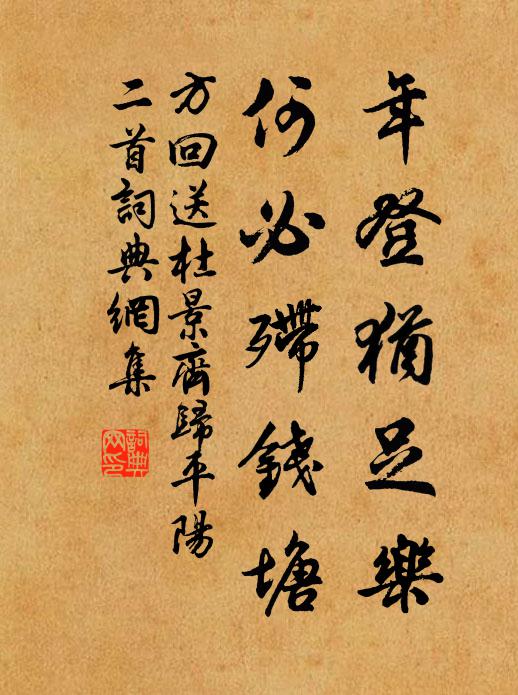 年登猶足樂
何必殢錢塘
方回送杜景齊歸平陽
二首詞典網集
詞典
网印